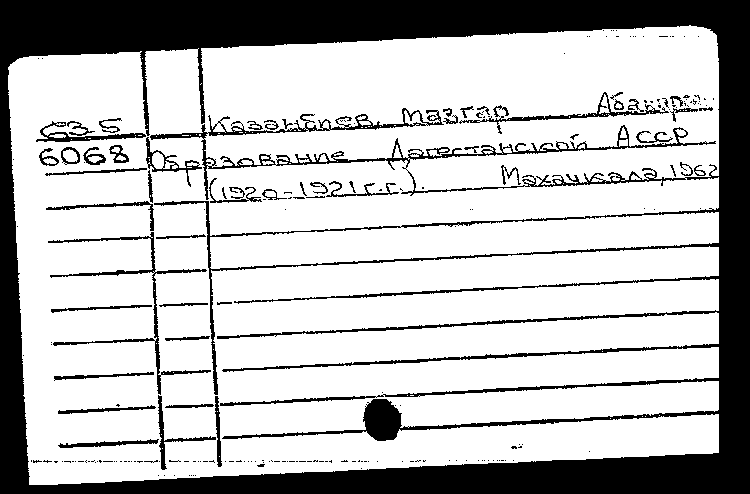 63-5 Казанбиев, Мазгар Абакар
6068 Образование Дагестанской АССР
(1920-1921 г.г.). Махачкала, 1962